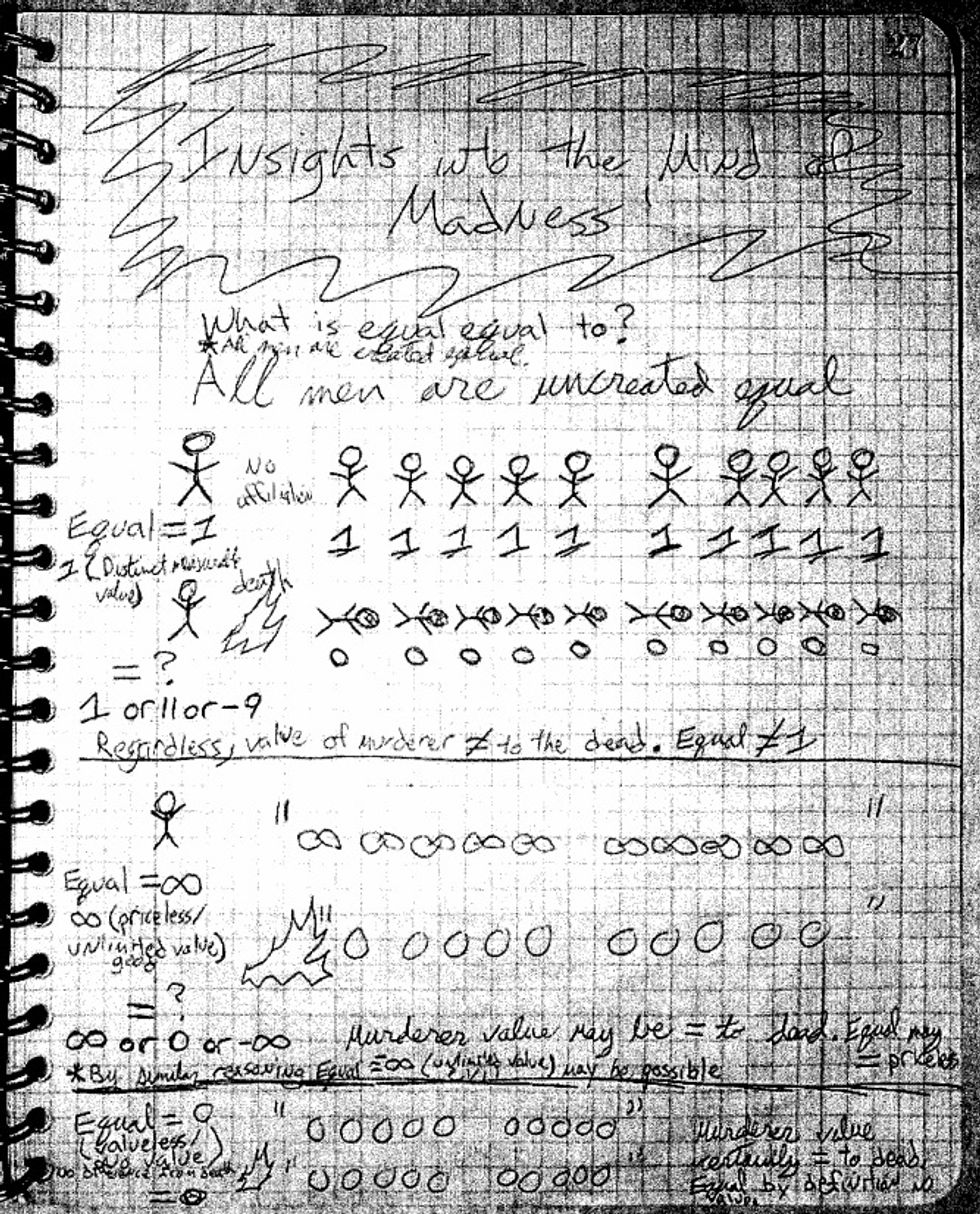 27
Insights into the Mind of
Madness
What is equal equal to?
*All men are created equal.
All men are uncreated equal
No
affiliation
Equal = 1
1 1 1 1 1 1 1 1 1 1
1 (Distinct measurable
value)
death
0 0 0 0 0 0 0 0 0 0
= ?
1 or 11 or -9
Regardless, value of murderer ≠ to the dead. Equal ≠ 1
" ∞ ∞ ∞ ∞ ∞ ∞ ∞ ∞ ∞ ∞ "
Equal = ∞
∞ (priceless/
unlimited value)
good
" 0 0 0 0 0 0 0 0 0 0 "
= ?
∞ or 0 or -∞
Murderer value may be = to dead. Equal may
= priceless
*By similar reasoning Equal = ∞ (unlimited value) may be possible
Equal = 0
" 0 0 0 0 0 0 0 0 0 0 "
(valueless/
value)
no difference from death
" 0 0 0 0 0 0 0 0 0 0 "
= 0
Murderer value
certainly = to dead,
Equal by definition no
value